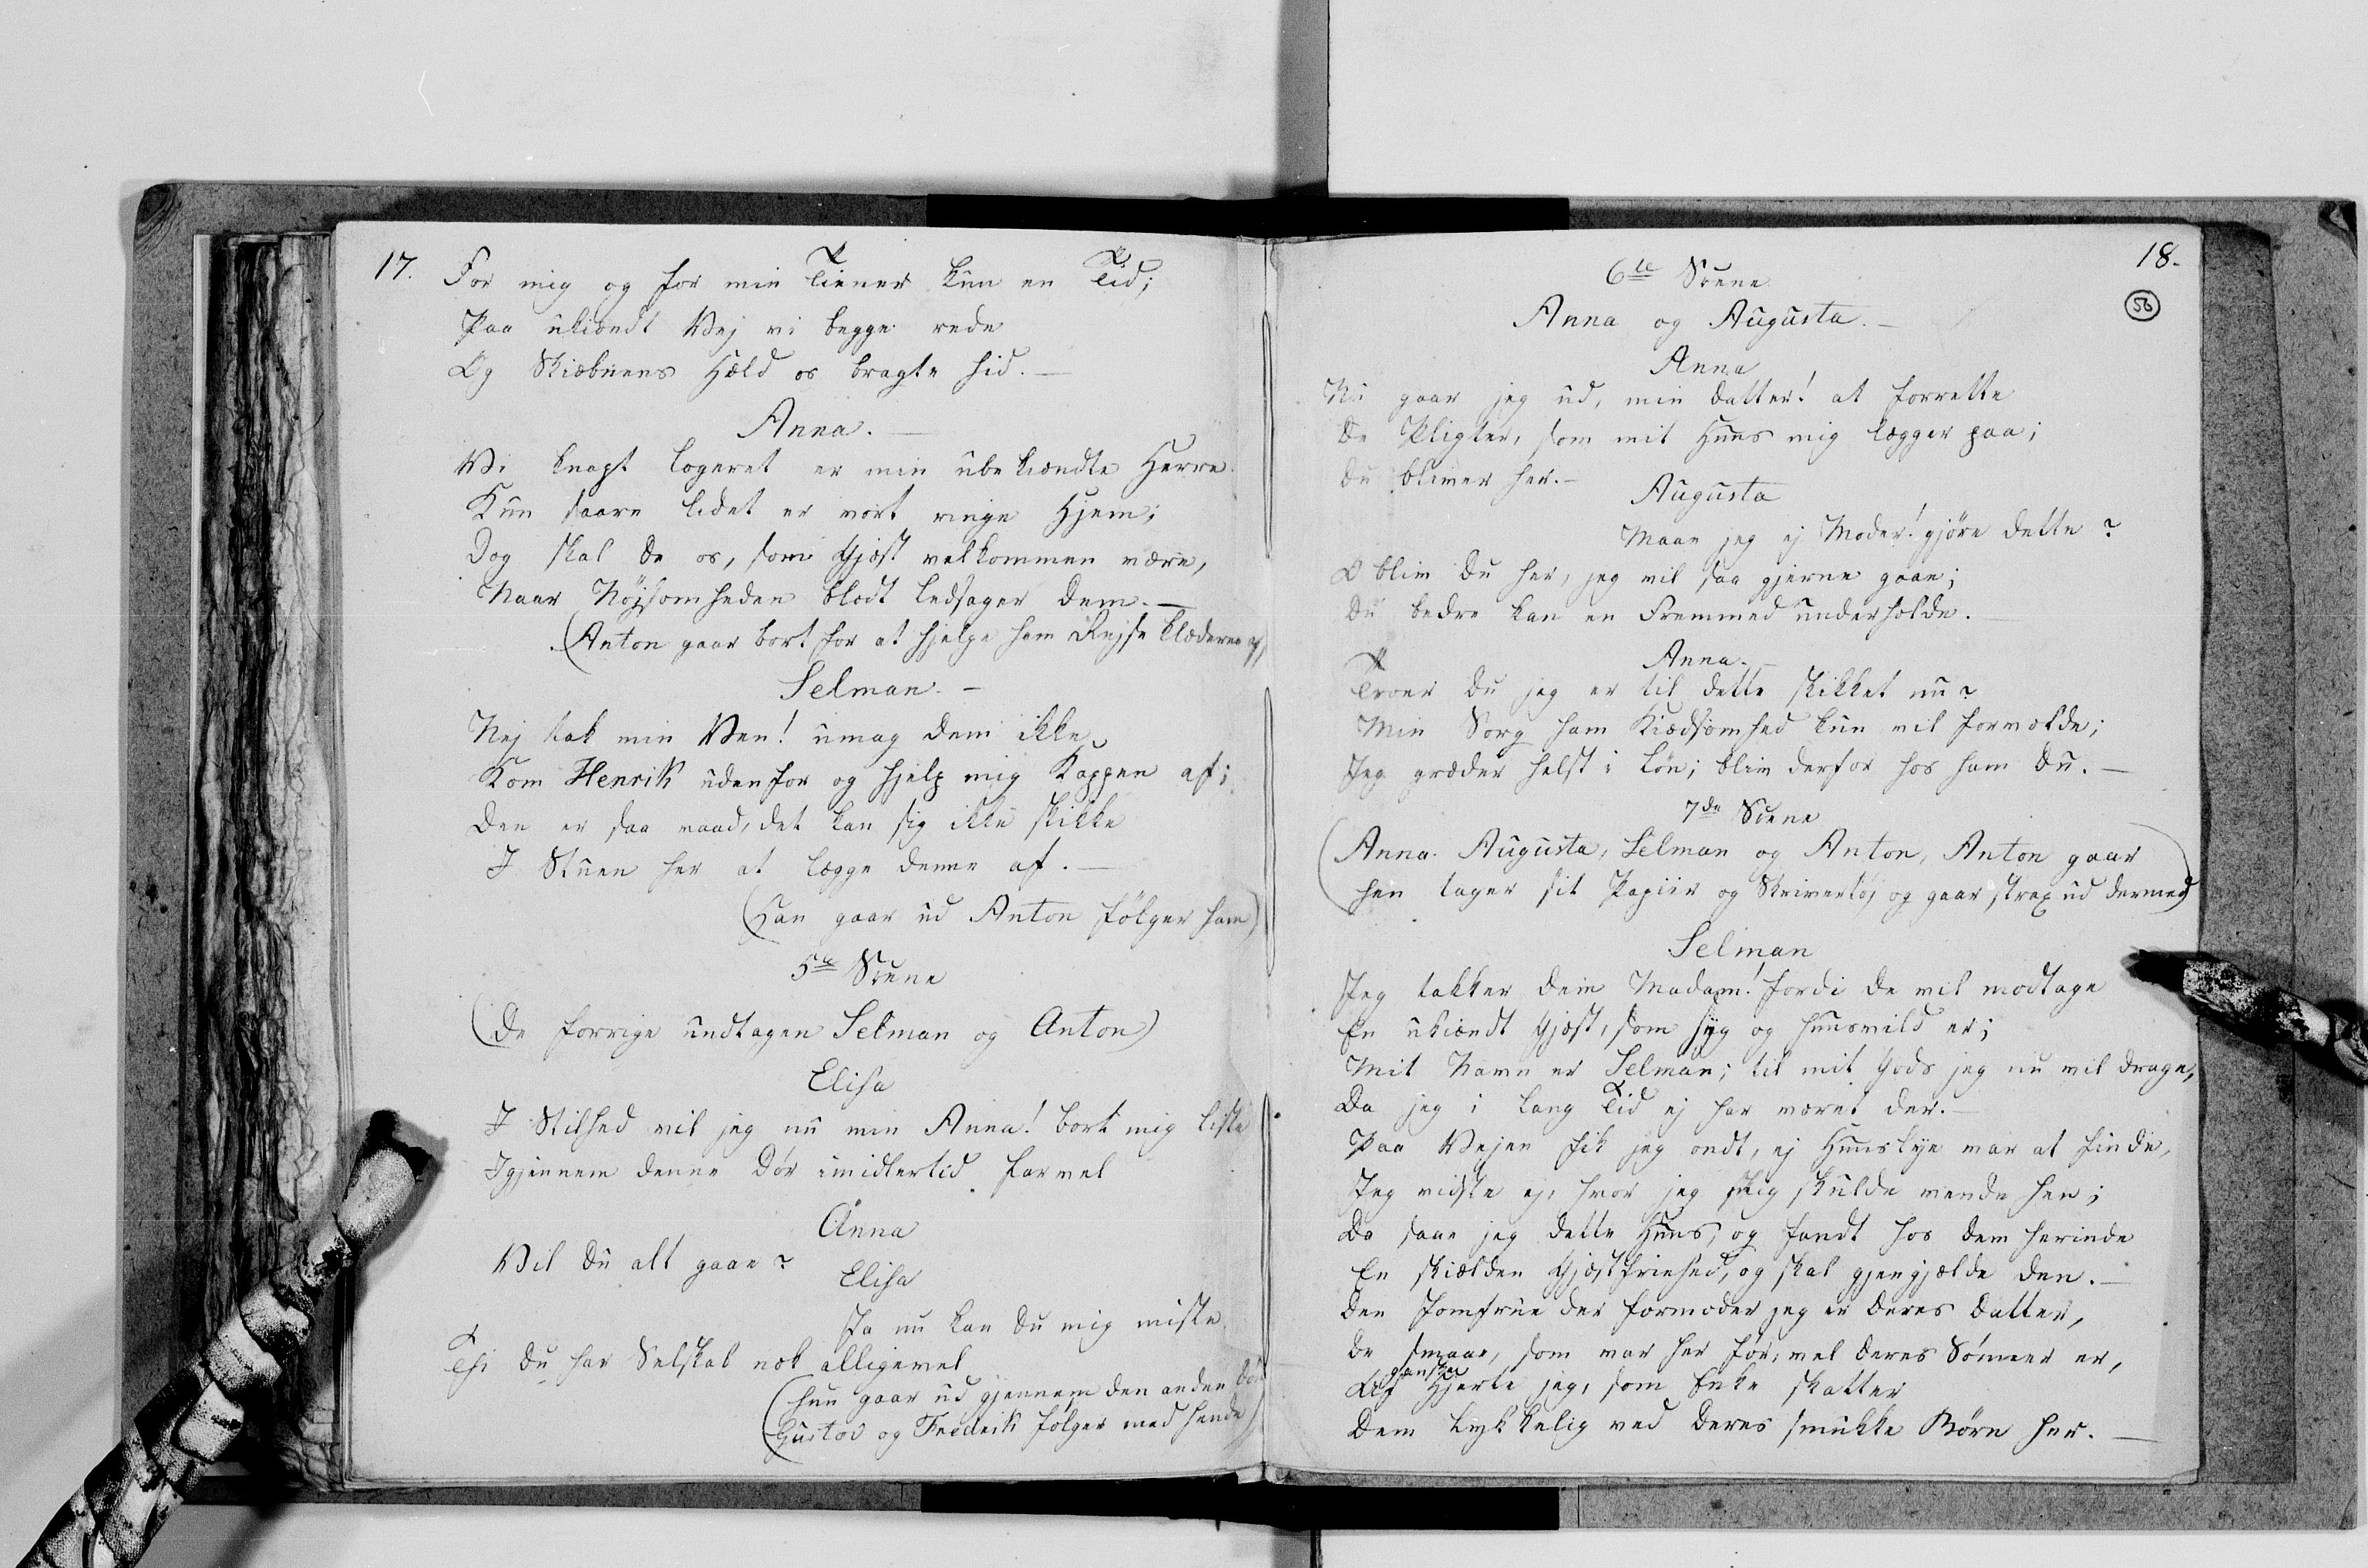 17.
For mig og for min Tiener kun en Tid;
Paa ukiendt Vej vi begge rede
Og Skiæbnens Hæld os bragte hid. —
Anna. —
Vi knapt logeret er min ubekiendte Herre
Kun saare lidet er vort ringe Hjem;
Dog skal De os, som Gjæst velkommen være,
Naar Nøjsomheden blodt ledsager Dem. —
(Anton gaar bort for at hjelpe ham Rejse Klæderne af)
Selman. —
Nej tak min Ven! umag Dem ikke,
Kom Henrik udenfor og hjelp mig Kappen af;
Den er saa vaad, det kan sig ikke skikke
I Stuen her at lægge denne af. —
(Han gaar ud Anton følger ham)
5te Scene
(De forrige undtagen Selman og Anton)
Elisa
I Stilhed vil jeg nu min Anna! bort mig liste
Igjennem denne Dør imidlertid farvel
Anna
Vil Du alt gaae?
Elisa
Ja nu kan Du mig miste
Thi Du har Selskab nok alligevel
(hun gaar ud gjennem den anden Dør
Gustav og Fredrik følger med hende)
18.
56
6te Scene
Anna og Augusta. —
Anna
Nu gaar jeg ud, min Datter! at forrette
De Pligter, som mit Huus mig lægger paa;
Du bliver her. —
Augusta
Maae jeg ej Moder! gjøre dette?
O bliv Du her, jeg vil saa gjerne gaae;
Du bedre kan en Fremmed underholde. —
Anna. —
Troer Du jeg er til dette skikket nu?
Min Sorg ham Kiedsomhed kun vil forvolde;
Jeg græder helst i Løn; bliv derfor hos ham Du. —
7de Scene
(Anna. Augusta, Selman og Anton, Anton gaar
hen tager sit Papiir og Skrivertøj og gaar strax ud dermed)
Selman
Jeg takker Dem Madam! fordi De vil modtage
En ukiendt Gjæst, som syg og huusvild er;
Mit Navn er Selman; til mit Gods jeg nu vil drage,
Da jeg i lang Tid ej har været der. —
Paa Vejen fik jeg ondt, ej Huuslye var at finde,
Jeg vidste ej, hvor jeg mig skulde vende hen;
Da saae jeg dette Huus, og fandt hos Dem herinde
En skielden Gjæstfriehed, og skal gjengjælde den. —
Den Jomfrue der formoder jeg er Deres Datter,
De smaae, som var her før, vel Deres Sønner er,
Af ganske Hjerte jeg, som Enke skatter
Dem lykkelig ved Deres smukke Børn her. —